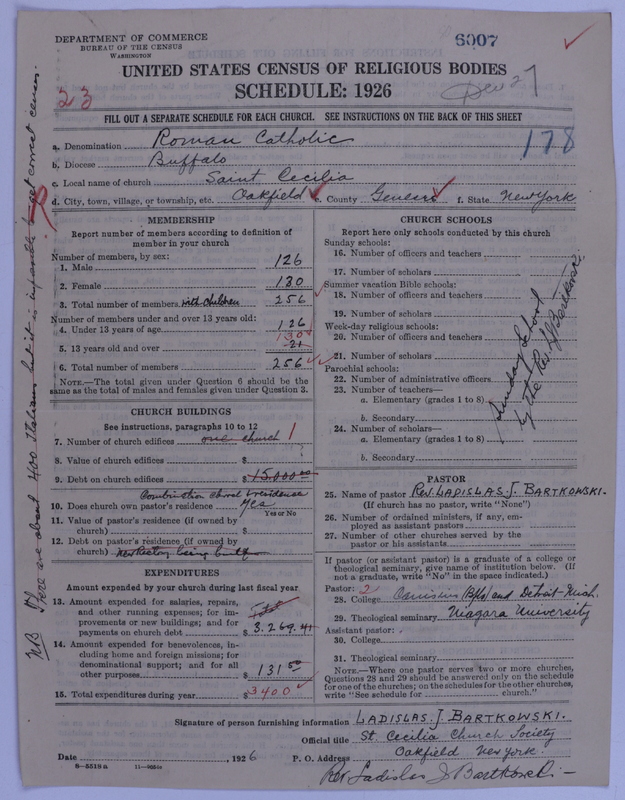 DEPARTMENT OF COMMERCE
BUREAU OF THE CENSUS
WASHINGTON
6007
UNITED STATES CENSUS OF RELIGIOUS BODIES
SCHEDULE: 1926
23
FILL OUT A SEPARATE SCHEDULE FOR EACH CHURCH. SEE INSTRUCTIONS ON THE BACK OF THIS SHEET
178
a. Denomination Roman Catholic
b. Diocese Buffalo
c. Local name of church Saint Cecilia
d. City, town, village, or township, etc. Oakfield e. County Genesee f. State New York
MEMBERSHIP
Report number of members according to definition of
member in your church
Number of members, by sex:
1. Male 126
2. Female 130
3. Total number of members with children 256
Number of members under and over 13 years old:
4. Under 13 years of age 126
130
5. 13 years old and over
6. Total number of members 256
NOTE.—The total given under Question 6 should be the
same as the total of males and females given under Question 3.
CHURCH BUILDINGS
See instructions, paragraphs 10 to 12
7. Number of church edifices one church 1
8. Value of church edifices $
9. Debt on church edifices $15.000.00
Combination church & residence
10. Does church own pastor's residence Yes
Yes or No
11. Value of pastor's residence (if owned by
church) $
12. Debt on pastor's residence (if owned by
church) New Rectory being built
EXPENDITURES
Amount expended by your church during last fiscal year
13. Amount expended for salaries, repairs,
and other running expenses; for im-
provements or new buildings; and for
payments on church debt Total $ 3.269.41
14. Amount expended for benevolences, in-
cluding home and foreign missions; for
denominational support; and for all
other purposes $ 131.00
15. Total expenditures during year $3400
CHURCH SCHOOLS
Report here only schools conducted by this church
Sunday schools:
16. Number of officers and teachers
17. Number of scholars
Summer vacation Bible schools:
18. Number of officers and teachers
19. Number of scholars
Week-day religious schools:
20. Number of officers and teachers
21. Number of scholars
Parochial schools:
22. Number of administrative officers
23. Number of teachers—
a. Elementary (grades 1 to 8)
b. Secondary
24. Number of scholars—
a. Elementary (grades 1 to 8)
b. Secondary
Sunday School
by the Rev. L. J. Bartkowski
PASTOR
25. Name of pastor Rev. LADISLAS. J. BARTKOWSKI.
(If church has no pastor, write "None")
26. Number of ordained ministers, if any, em-
ployed as assistant pastors
27. Number of other churches served by the
pastor or his assistants
If pastor (or assistant pastor) is a graduate of a college or
theological seminary, give name of institution below. (If
not a graduate, write "No" in the space indicated.)
Pastor: 2
28. College Canisius Bflo and Detroit-Mich.
29. Theological seminary Niagara University
Assistant pastor:
30. College
31. Theological seminary
NOTE.—Where one pastor serves two or more churches,
Questions 28 and 29 should be answered only on the schedule
for one of the churches; on the schedules for the other churches,
write "See schedule for church."
Signature of person furnishing information LADISLAS. J. BARTKOWSKI.
Official title St. Cecilia Church Society
Date , 1926 P. O. Address Oakfield New York.
8-5518a
Rev Ladislas J Bartkowski
NB There are about 400 Italians but it is impossible to get correct census.